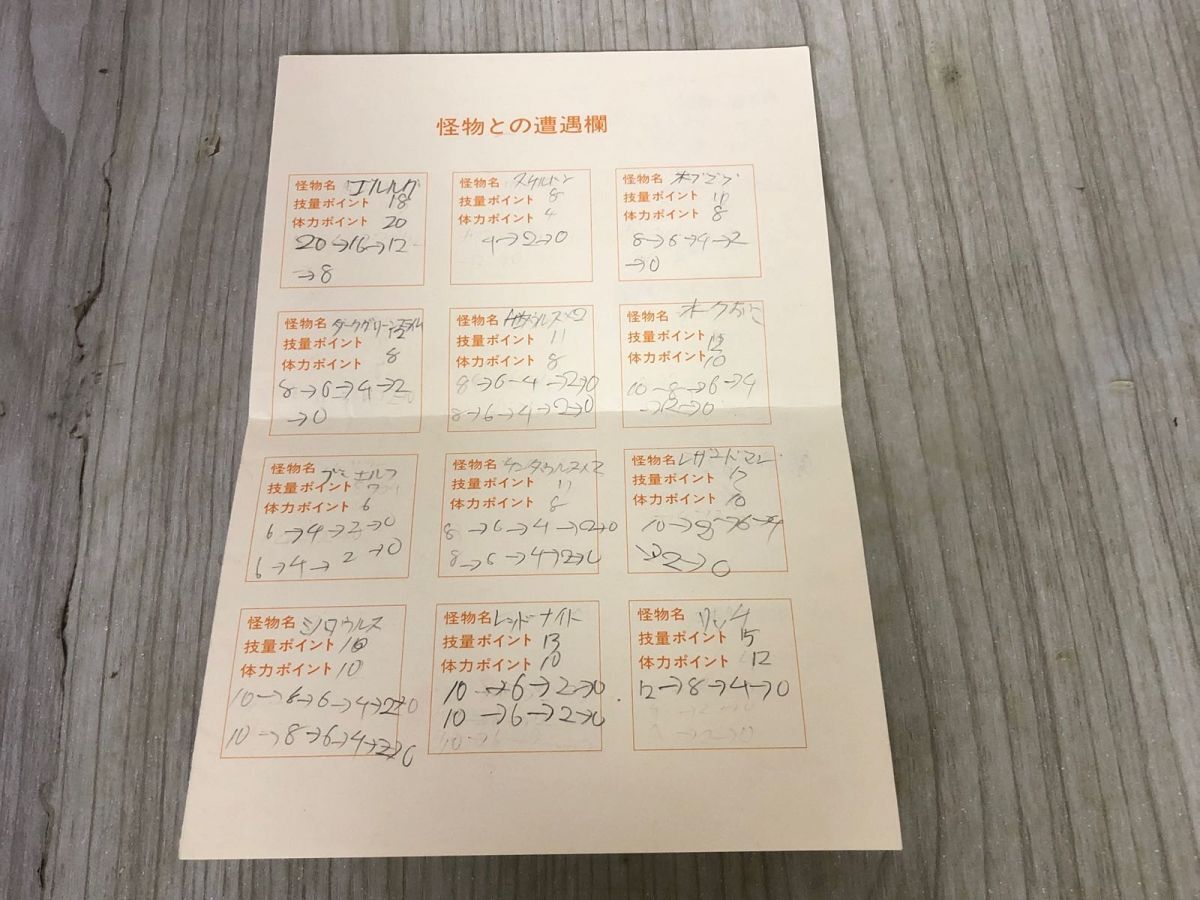 怪物との遭遇欄
怪物名 エルルグ
技量ポイント 18
体力ポイント 20
20→16→12
→8
怪物名 スケルトン
技量ポイント 8
体力ポイント 4
4→2→0
怪物名 ホブゴブ
技量ポイント 10
体力ポイント 8
8→6→4→2
→0
怪物名 ダークグリーン
技量ポイント
体力ポイント 8
8→6→4→2
→0
怪物名
技量ポイント 11
体力ポイント 8
8→6-4→2→0
8→6→4→2→0
怪物名
技量ポイント 12
体力ポイント 10
10-8→6→4
→2→0
怪物名
技量ポイント 7
体力ポイント 6
6→4→2→0
6→4→2→0
怪物名 ケンタウルス×2
技量ポイント 11
体力ポイント 8
8→6→4→2→0
8→6→4→2→0
怪物名 レザードマン
技量ポイント 12
体力ポイント 10
10→8→6→4
→2→0
怪物名 ミノタウルス
技量ポイント 10
体力ポイント 10
10→8→6→4→2→0
10→8→6→4→2→0
怪物名 レッドナイト
技量ポイント 13
体力ポイント 10
10→6→2→0
10→6→2→0
怪物名 リッチ
技量ポイント 15
体力ポイント 12
12→8→4→0